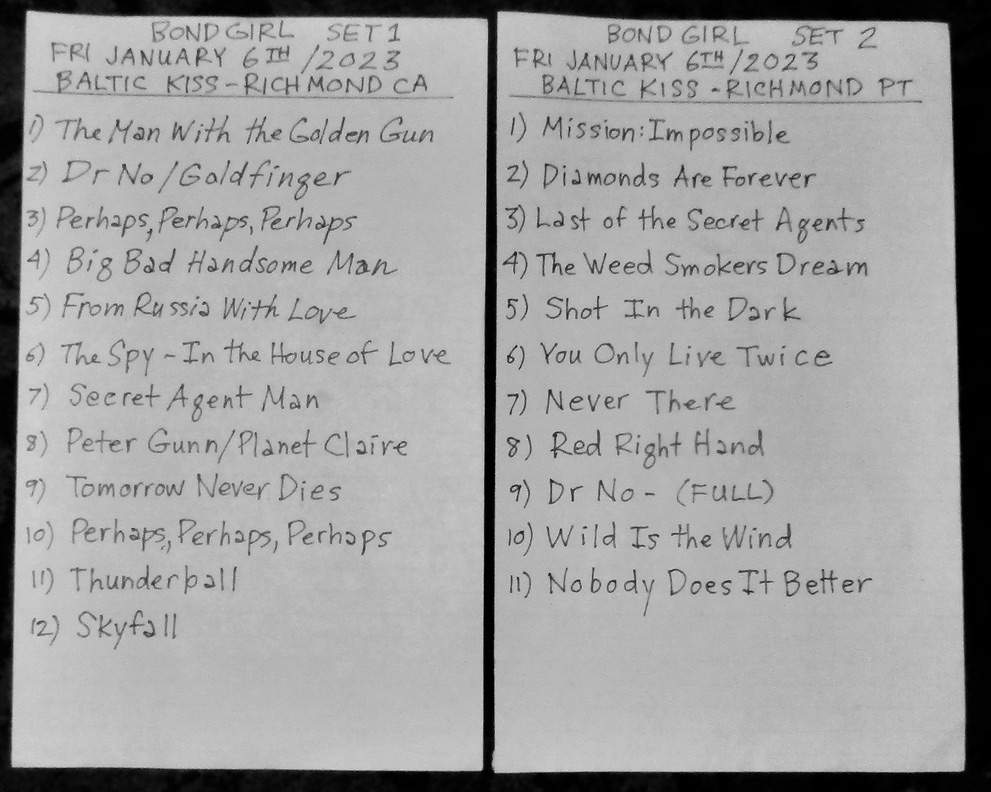 BOND GIRL SET 1
FRI JANUARY 6TH/2023
BALTIC KISS-RICHMOND CA
1) The Man With the Golden Gun
2) Dr No/Goldfinger
3) Perhaps, Perhaps, Perhaps
4) Big Bad Handsome Man
5) From Russia With Love
6) The Spy - In the House of Love
7) Secret Agent Man
8) Peter Gunn/Planet Claire
9) Tomorrow Never Dies
10) Perhaps, Perhaps, Perhaps
11) Thunderball
12) Skyfall
BOND GIRL SET 2
FRI JANUARY 6TH/2023
BALTIC KISS-RICHMOND PT
1) Mission: Impossible
2) Diamonds Are Forever
3) Last of the Secret Agents
4) The Weed Smokers Dream
5) Shot In the Dark
6) You Only Live Twice
7) Never There
8) Red Right Hand
9) Dr No - (FULL)
10) Wild Is the Wind
11) Nobody Does It Better